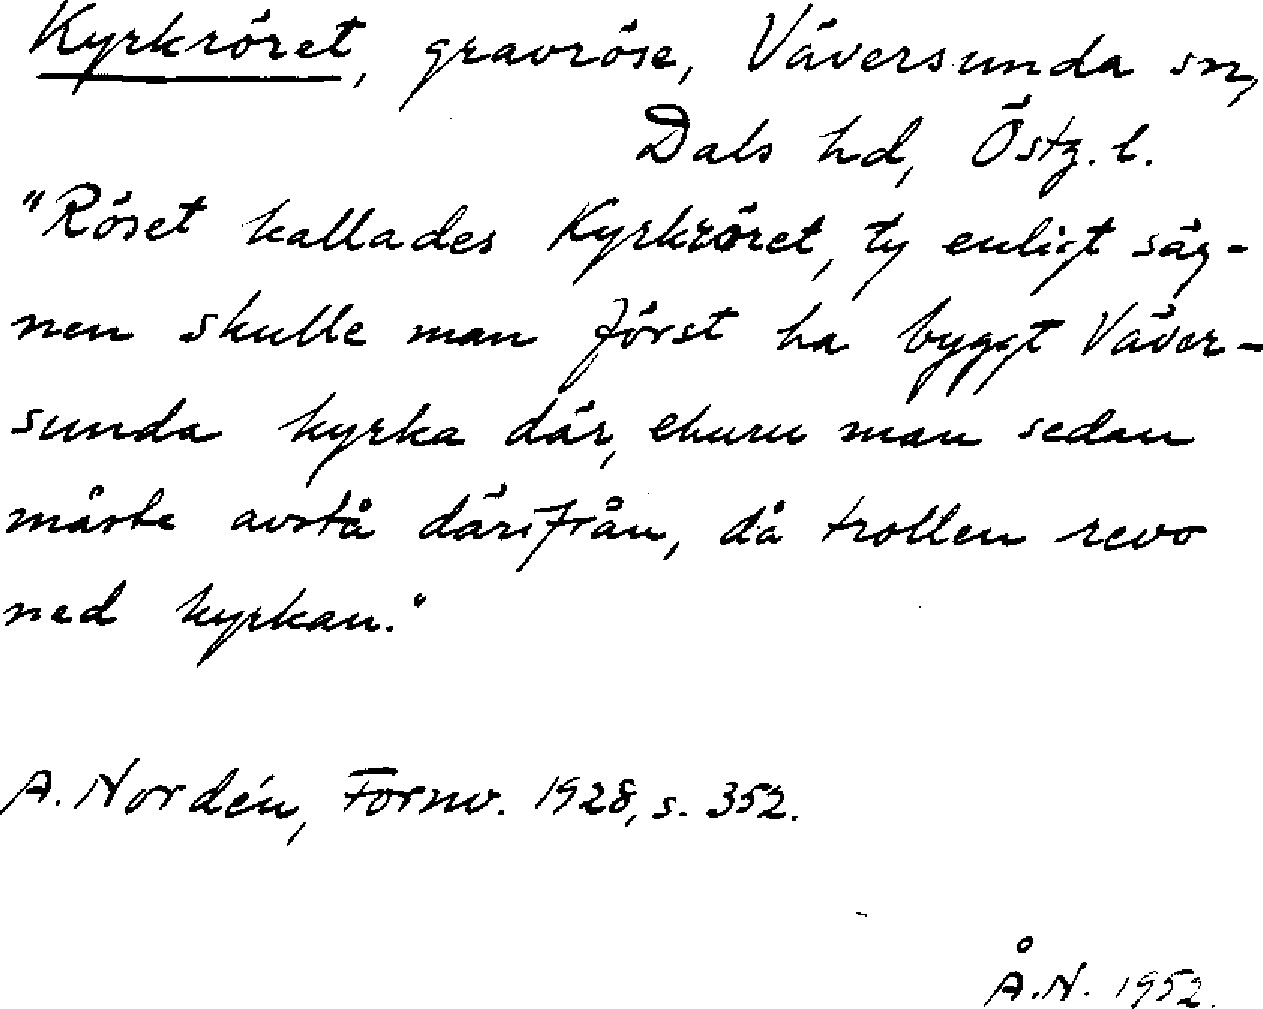 Kyrkröret, gravröse, Väversunda sn,
Dals hd, Östg. l.
"Röset kallades Kyrkröret, ty enligt säg-
nen skulle man först ha byggt Väver-
sunda kyrka där, ehuru man sedan
måste avstå därifrån, då trollen revo
ned kyrkan."
A. Nordén, Fornv. 1928, s. 352.
Å.N. 1952.